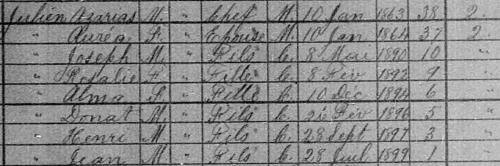 Julien Azarias M. " Chef M. 10 Jan 1863 38 2
" Aurea F. " Epouse M. 10 Jan 1864 37 2
" Joseph M. " Fils C. 8 Mai 1890 10 "
" Rosalie F. " Fille C. 8 Fev 1892 9 "
" Alma F. " Fille C. 10 Dec 1894 6 "
" Donat M. " Fils C. 26 Fev 1896 5 "
" Henri M. " Fils C. 28 Sept 1897 3 "
" Jean M. " Fils C. 28 Juil 1899 1 "